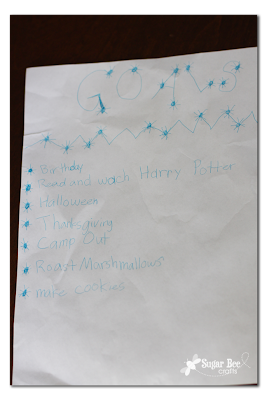 GOALS
Birthday
Read and wach Harry Potter
Halloween
Thanksgiving
Camp Out
Roast Marshmallows
make cookies
Sugar Bee
crafts